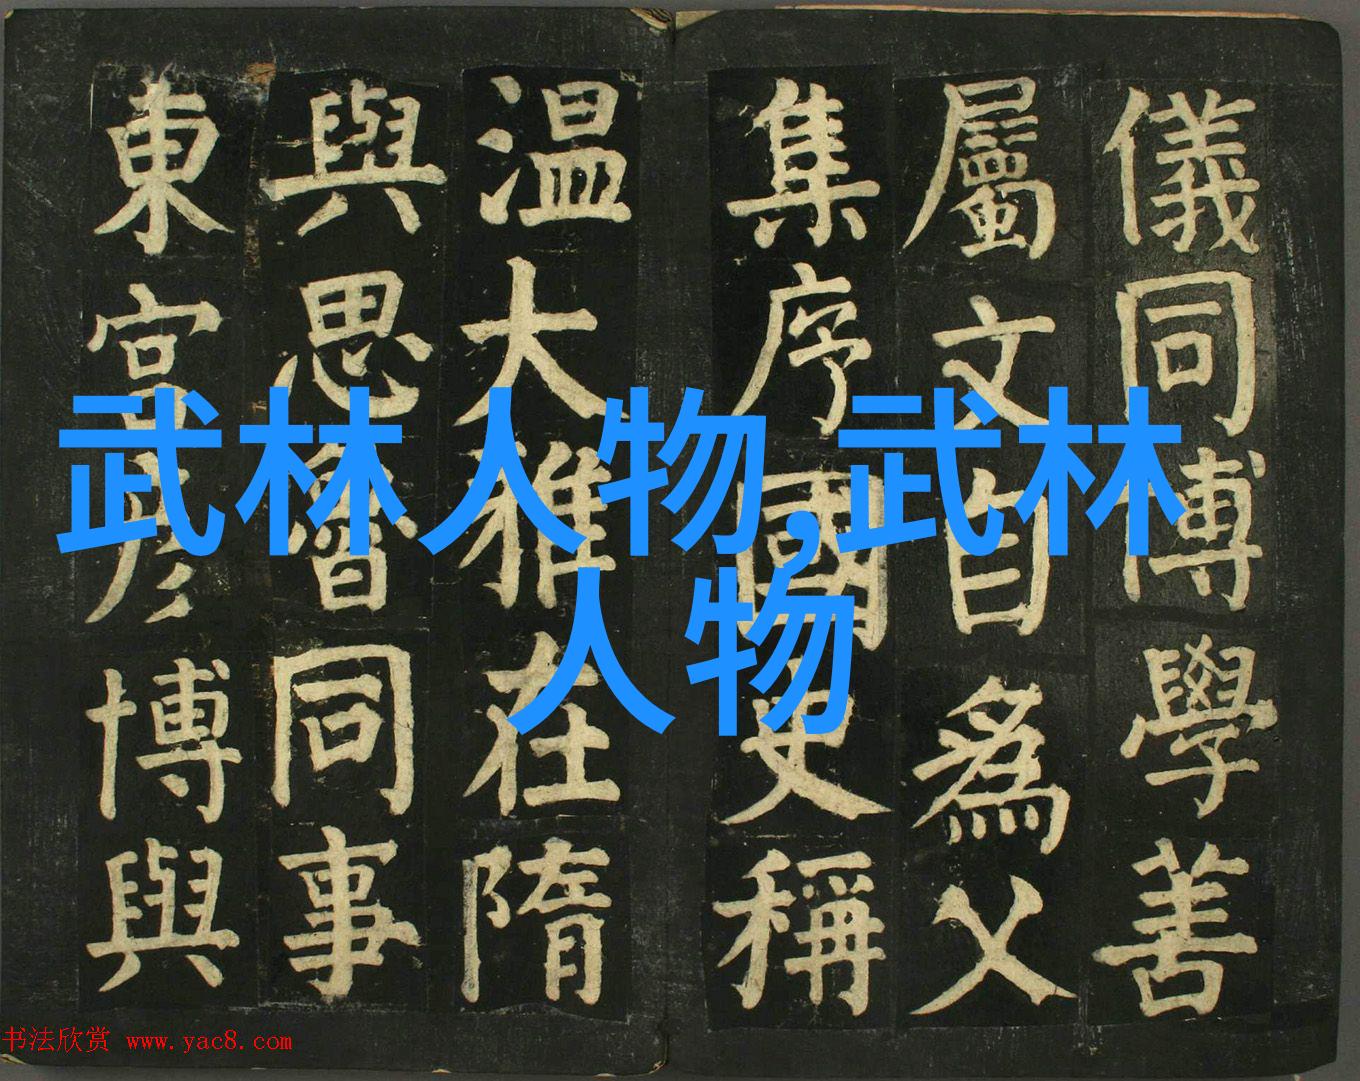 儀同博學善
屬文自為父
集序國史稱
温大雅在隋
與思魯同事
東宮彥博與
武林人物,武林
人物
书法欣赏 www.yac8.com